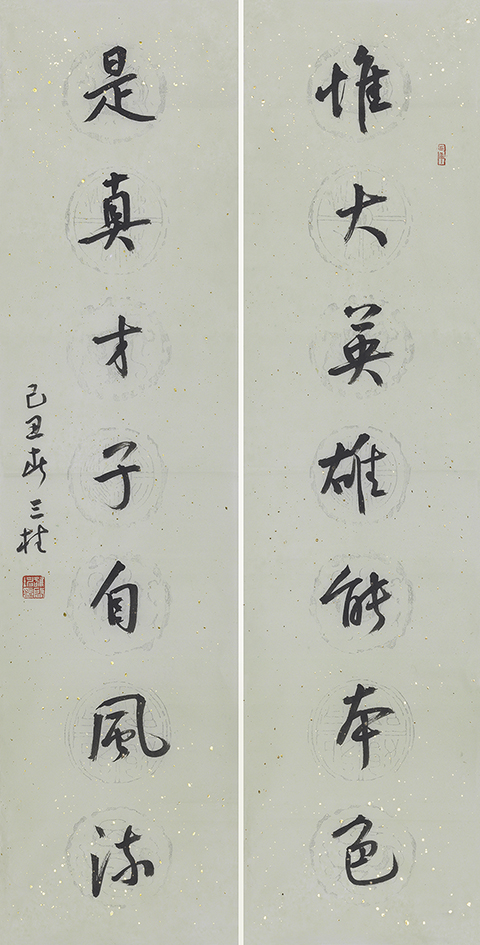 惟大英雄能本色
是真才子自風流
己丑春三桂